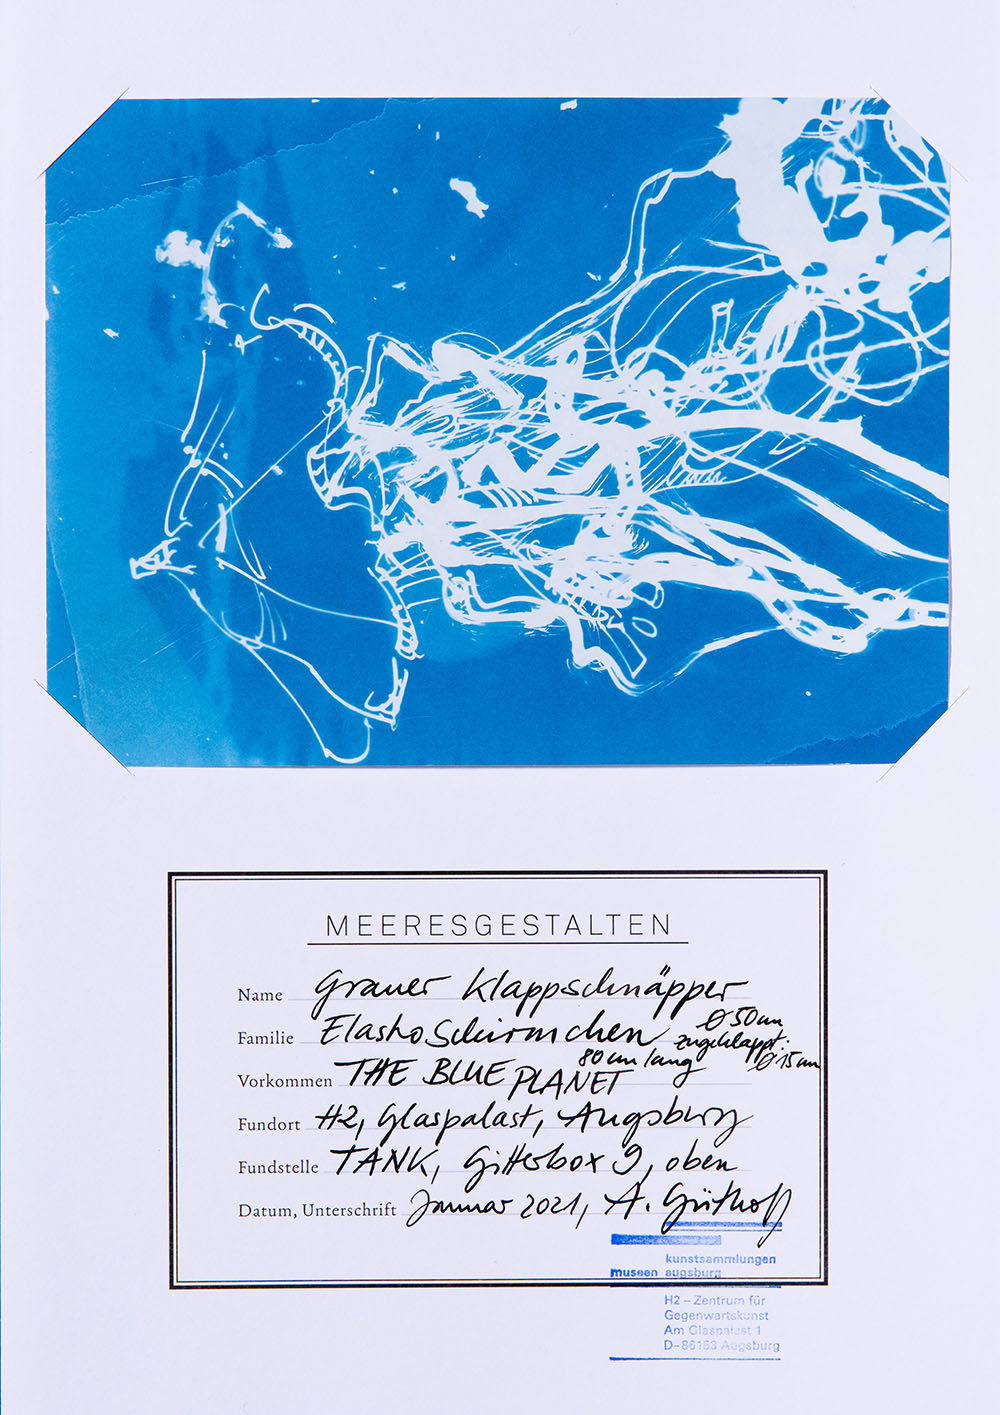 MEERESGESTALTEN
Name Grauer Klappschnäpper
Familie Elastoschirmchen Ø 50 cm
zugeklappt:
80 cm lang Ø 15 cm
Vorkommen THE BLUE PLANET
Fundort H2, Glaspalast, Augsburg
Fundstelle TANK, Gitterbox 9, oben
Datum, Unterschrift Januar 2021, A.
kunstsammlungen
museen augsburg
H2 – Zentrum für
Gegenwartskunst
Am Glaspalast 1
D-86153 Augsburg